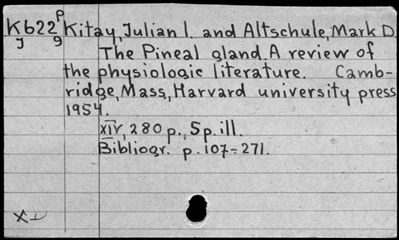 K622 p Kitay, Julian I. and Altschule, Mark D
J 9 The Pineal gland. A review of
the physiologic literature. Camb-
ridge, Mass, Harvard university press
1954.
XIV, 280 p., 5p. ill.
Bibliogr. p. 107-271.